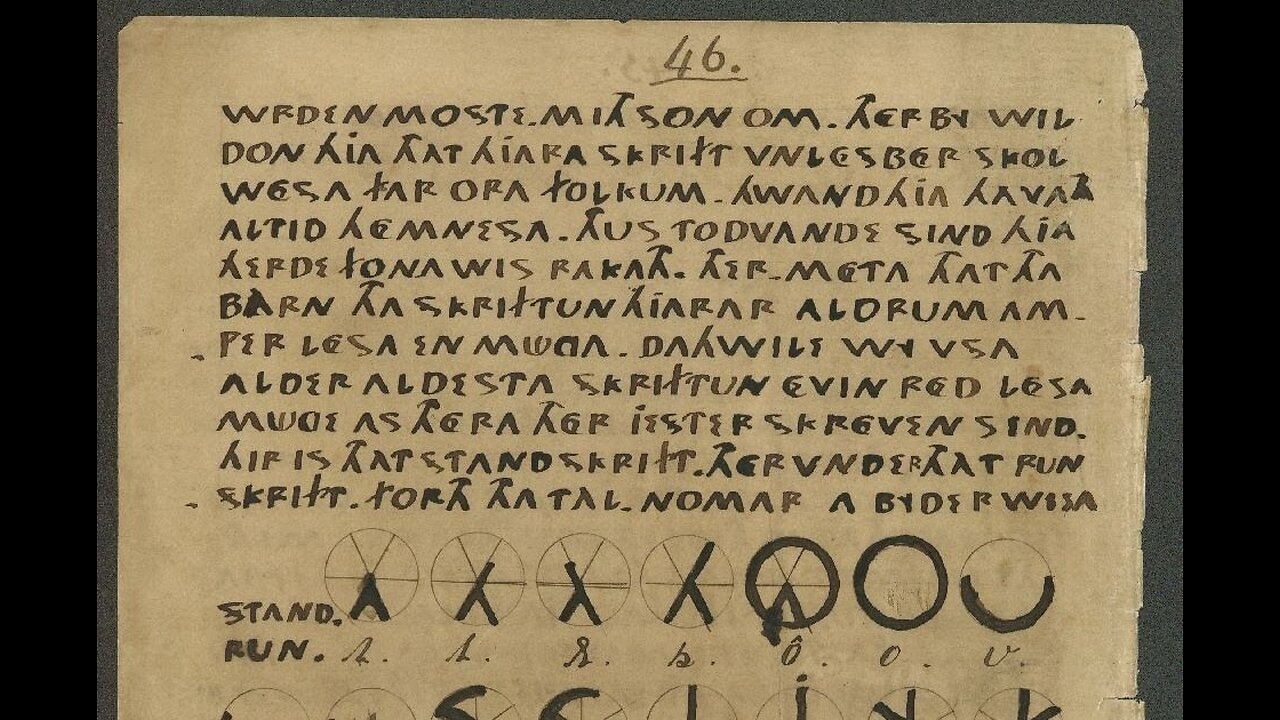 46.
WRDEN MOSTE. MITH SON OM. THERBY WIL
DON HIA THAT HIARA SKRIFT VNLESBER SKOL
WESA FAR ORA FOLKUM. HWAND HIA HAVATH
ALTID HEMNESA. THUS TODVANDE SIND HIA
HERDE FONA WIS RAKATH. THER-META THAT THA
BARN THA SKRIFTUN HIARAR ALDRUM AM-
PER LESA EN MÜGA. DAHWILE WY VSA
ALDER ALDESTA SKRIFTUN EVIN RED LESA
MÜGE AS THERA THER IESTER SKREVEN SEND.
HIR IS THAT STANDSKRIFT. THERVNDER THAT RUN
SKRIFT. FORTH THA TAL-NOMAR A BYDER WISA
STAND.
RUN. A. A. o. v.